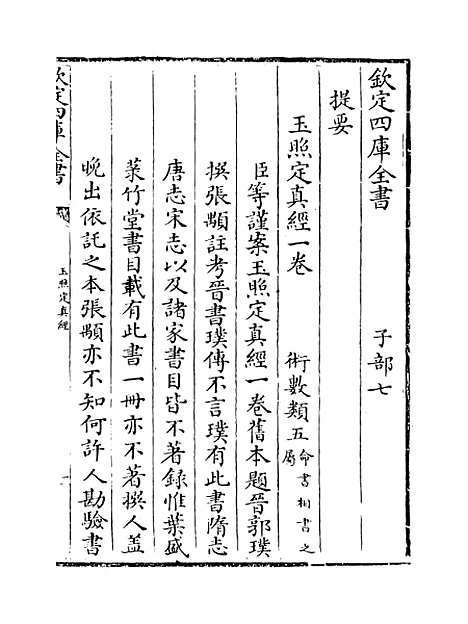 欽定四庫全書　　　子部七
提要
玉照定真經一卷　　術數類五命書相書之屬
臣等謹案玉照定真經一卷舊本題晉郭璞
撰張顒註考晉書璞傳不言璞有此書隋志
唐志宋志以及諸家書目皆不著錄惟葉盛
菉竹堂書目載有此書一冊亦不著撰人蓋
晚出依託之本張顒亦不知何許人勘驗書
欽定四庫全書
玉照定真經
一